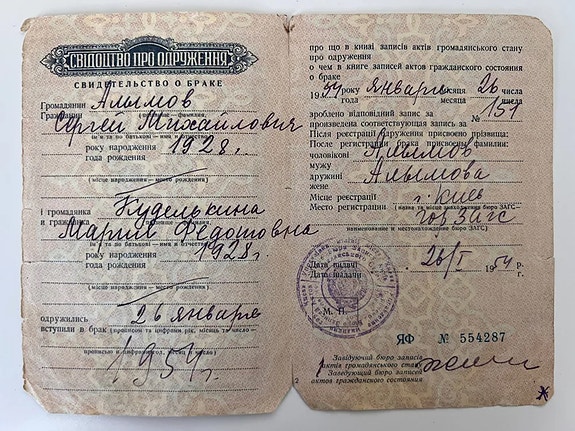 СВІДОЦТВО ПРО ОДРУЖЕННЯ
СВИДЕТЕЛЬСТВО О БРАКЕ
Громадянин Алымов
Гражданин
Сергей Михайлович
ім'я та по батькові — имя и отчество
року народження 1928 г.
года рождения
(місце народження — место рождения)
і громадянка Куделькина
и гражданка
Мария Федотовна
ім'я та по батькові — имя и отчество
року народження 1928 г
года рождения
(місце народження — место рождения)
одружились 26 января
вступили в брак (прописом та цифрами рік, місяць та число —
прописью и цифрами год, месяц и число)
1954 г.
про що в книзі записів актів громадянського стану
про одруження
о чем в книге записей актов гражданского состояния
о браке
1954 року января місяця 26 числа
года месяца числа
зроблено відповідний запис за № 151
произведена соответствующая запись за
Після реєстрації одруження присвоєно прізвища:
После регистрации брака присвоены фамилии:
чоловікові Алымов
мужу
дружині Алымова
жене
Місце реєстрації г. Киев
Место регистрации (назва та місце знаходження бюро ЗАГС —
гор ЗАГС
наименование и местонахождение бюро ЗАГС)
Дата видачі 26/I 1954 р.
Дата выдачи г.
М. П.
ЯФ № 554287
Завідуючий бюро записів
актів громадянського стану
Заведующий бюро записей
актов гражданского состояния
2